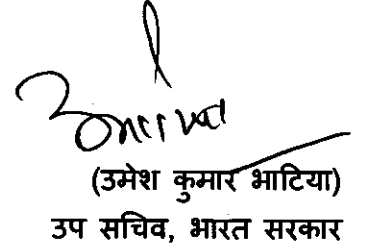 (उमेश कुमार भाटिया)
उप सचिव, भारत सरकार